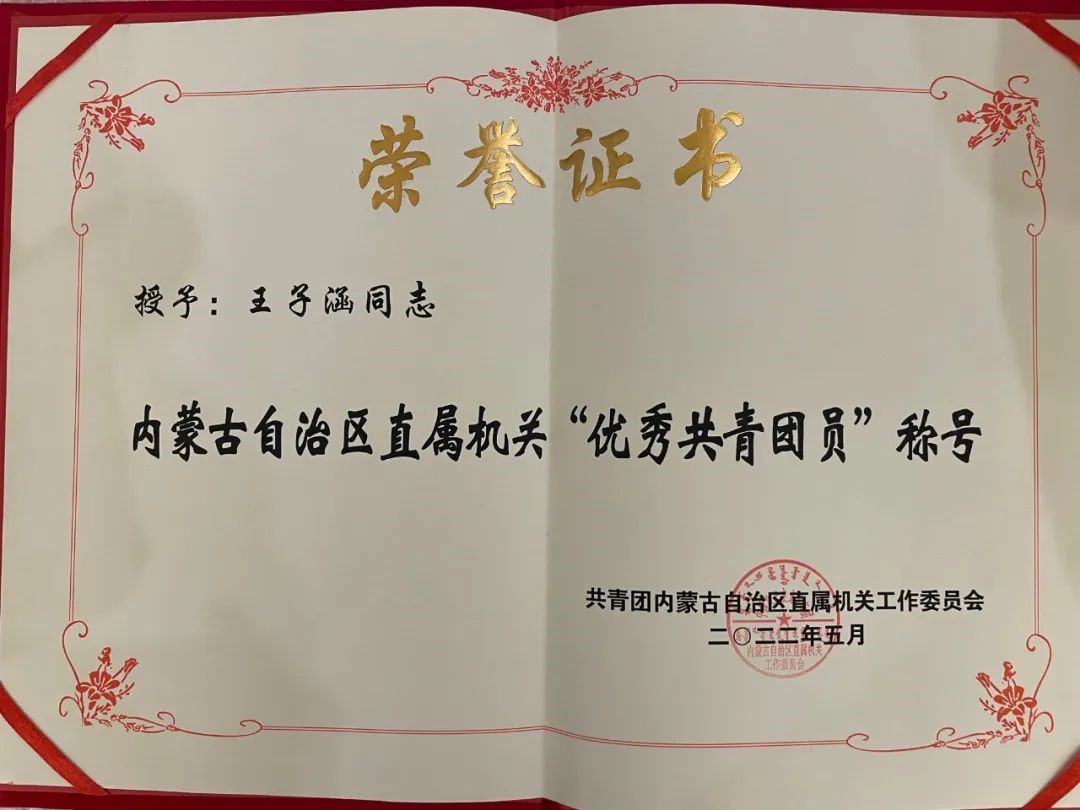 荣誉证书
授予：王子涵同志
内蒙古自治区直属机关“优秀共青团员”称号
共青团内蒙古自治区直属机关工作委员会
二〇二二年五月
内蒙古自治区直属机关
工作委员会